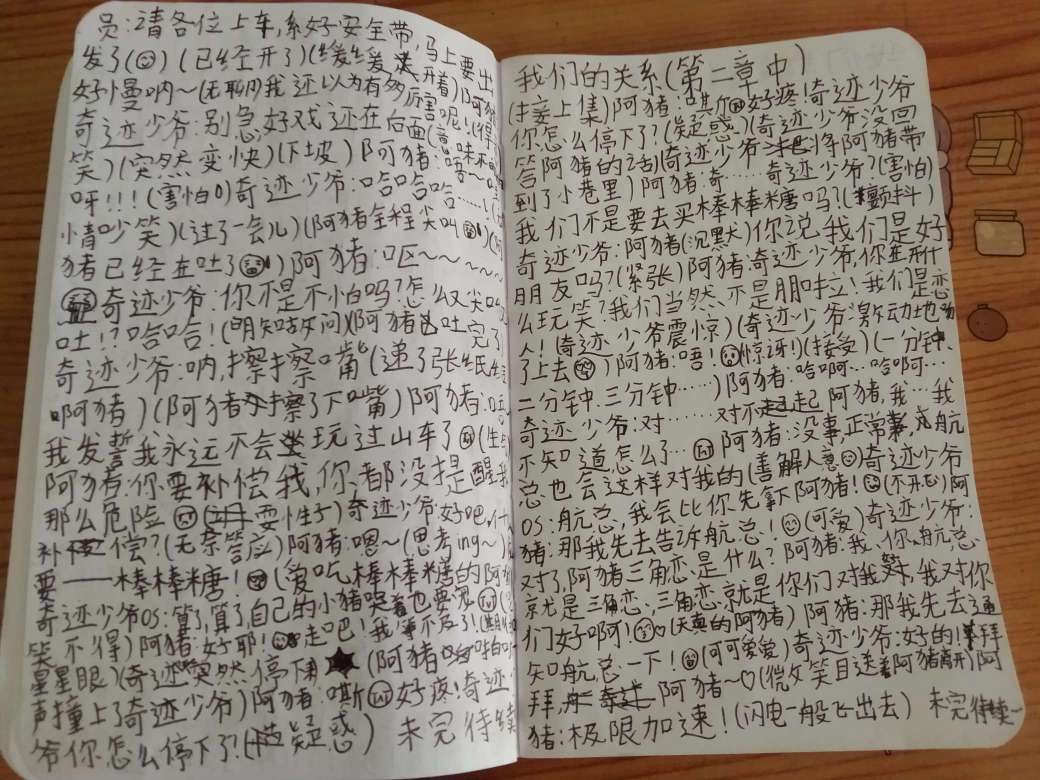 员:请各位上车,系好安全带,马上要出
发了(已经开了)(缓缓开着)阿猪
好慢呐~(无聊)我还以为有多厉害呢!
奇迹少爷:别急好戏还在后面(意味不
笑)(突然变快)(下坡)阿猪:唔~
呀!!!(害怕)奇迹少爷:哈哈哈……
情吵笑)(过了一会儿)(阿猪全程尖叫)
猪已经在吐了)阿猪:呕~~~~~
奇迹少爷:你不是不怕吗?怎么又尖叫
吐!?哈哈!(明知故问)(阿猪已吐完了
奇迹少爷:呐,擦擦嘴(递了张纸给
啊猪)(阿猪擦了下嘴)阿猪:
我发誓我永远不会坐玩过山车了
阿猪:你要补偿我,你都没提醒我
那么危险(要性子)奇迹少爷:好吧,什
补偿?(无奈答应)阿猪:嗯~(思考ing~)
要——棒棒糖!(爱吃棒棒糖的阿
奇迹少爷OS:算了,算了,自己的小猪哭着也要宠
笑不得)阿猪:好耶!走吧!我等不及了!
星星眼)(奇迹突然停下来)(阿猪
声撞上了奇迹少爷)阿猪:嘶好疼!奇迹
爷你怎么停下了?(疑惑) 未完待续
我们的关系(第二章中)
(接上集)阿猪:嘶好疼!奇迹少爷
你怎么停下了?(疑惑)(奇迹少爷没回
答阿猪的话)(奇迹少爷将阿猪带
到了小巷里)阿猪:奇……奇迹少爷?(害怕)
我们不是要去买棒棒糖吗?(颤抖)
奇迹少爷:阿猪(沉默)你说我们是好
朋友吗?(紧张)阿猪:奇迹少爷,你在开什
么玩笑?我们当然不是朋咔立!我们是恋
人!(奇迹少爷震惊)(奇迹少爷激动地
了上去)阿猪:唔!(惊讶!)(接受)(一分钟、
二分钟、三分钟……)阿猪:哈啊…哈啊…
奇迹少爷:对……对不起 阿猪,我…我
不知道怎么了…阿猪:没事,正常,航
总也会这样对我的(善解人意)奇迹少爷
OS:航总,我会比你先拿下阿猪!(不开心)阿
猪:那我先去告诉航总!(可爱)奇迹少爷:
对了,阿猪三角恋是什么?阿猪:我、你、航总
就是三角恋,三角恋就是你们对我好,我对你
们好啊!(天真的阿猪)阿猪:那我先去通
知航总一下!(可可爱爱)奇迹少爷:好的!拜
拜,阿猪~♡(微笑目送阿猪离开)阿
猪:极限加速!(闪电一般飞出去) 未完待续~